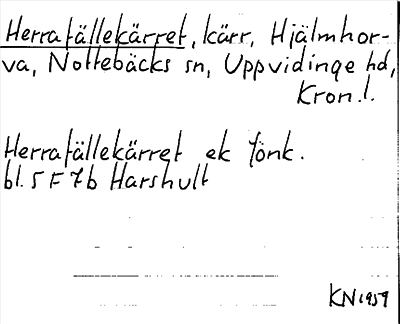 Herrafällekärret, kärr, Hjälmhor-
va, Nottebäcks sn, Uppvidinge hd,
Kron.l.
Herrafällekärret ek fönk.
bl. 5 F 7b Harshult
KN 1959